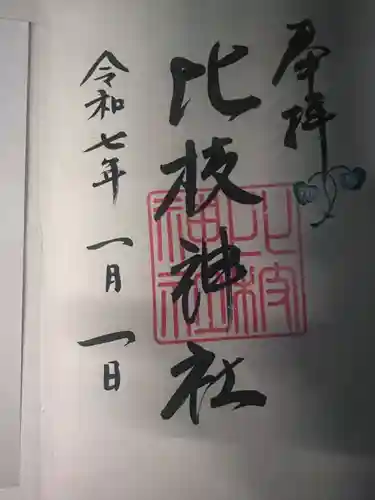 奉拝
比枝神社
比枝神社
令和七年一月一日